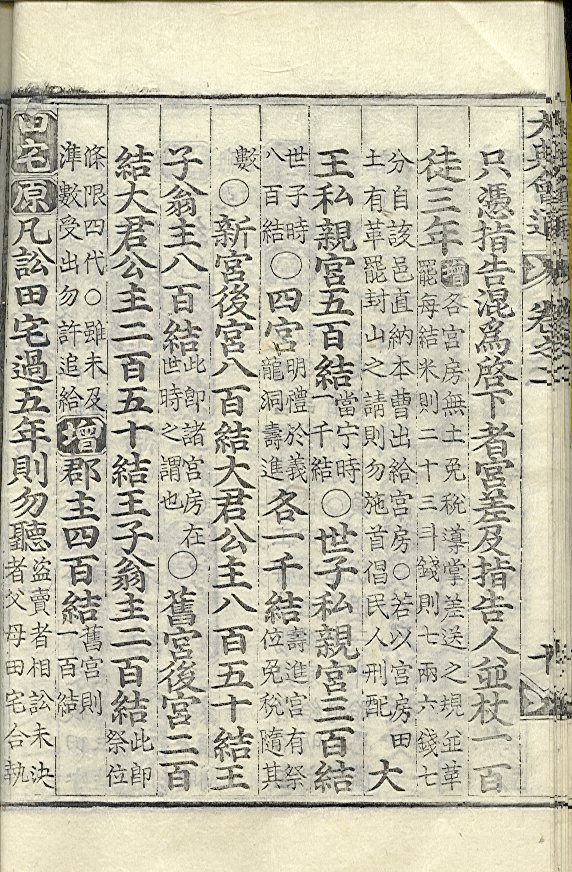 大典會通 卷之二
只憑指告混爲啓下者宮差及指告人並杖一百
徒三年增各宮房無土免稅導掌差送之規並革罷每結米則二十三斗錢則七兩六錢七
分自該邑直納本曹出給宮房○若以宮房田土有革罷封山之請則勿施首倡民人刑配大
王私親宮五百結當宁時一千結○世子私親宮三百結
世子時八百結○四宮明禮於義龍洞壽進各一千結壽進宮有祭位免稅隨其
數○新宮後宮八百結大君公主八百五十結王
子翁主八百結此卽諸宮房在世時之謂也○舊宮後宮二百
結大君公主二百五十結王子翁主二百結此卽祭位
條限四代○雖未及準數受出勿許追給增郡主四百結舊宮則一百結
田宅原凡訟田宅過五年則勿聽盜賣者相訟未決者父母田宅合執